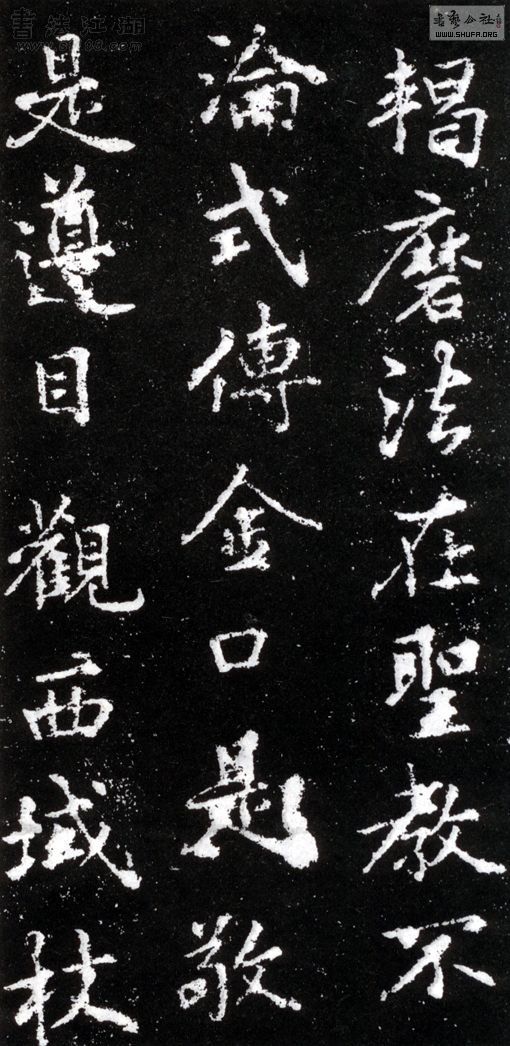 書藝公社
WWW.SHUFA.ORG
書法江湖
羯磨法在聖教不
淪式傳金口是敬
是遵目觀西域杖